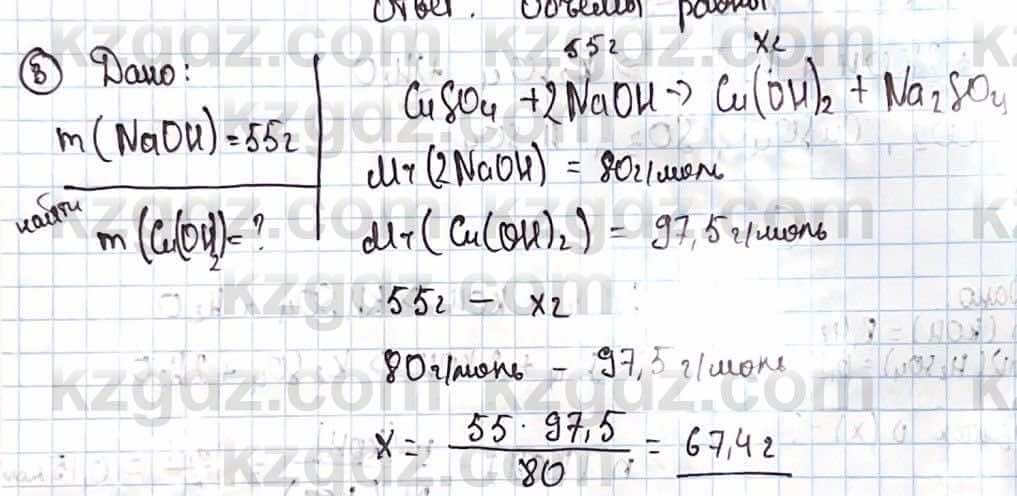 Ответ. Объемы равны
8 Дано:
m(NaOH)=55г
найти
m(Cu(OH)2=?
55г xг
CuSO4 +2NaOH→ Cu(OH)2 + Na2SO4
Mr(2NaOH) = 80г/моль
Mr(Cu(OH)2) = 97,5г/моль
55г – xг
80г/моль – 97,5 г/моль
x = 55 · 97,5 / 80 = 67,4г
kzgdz.com